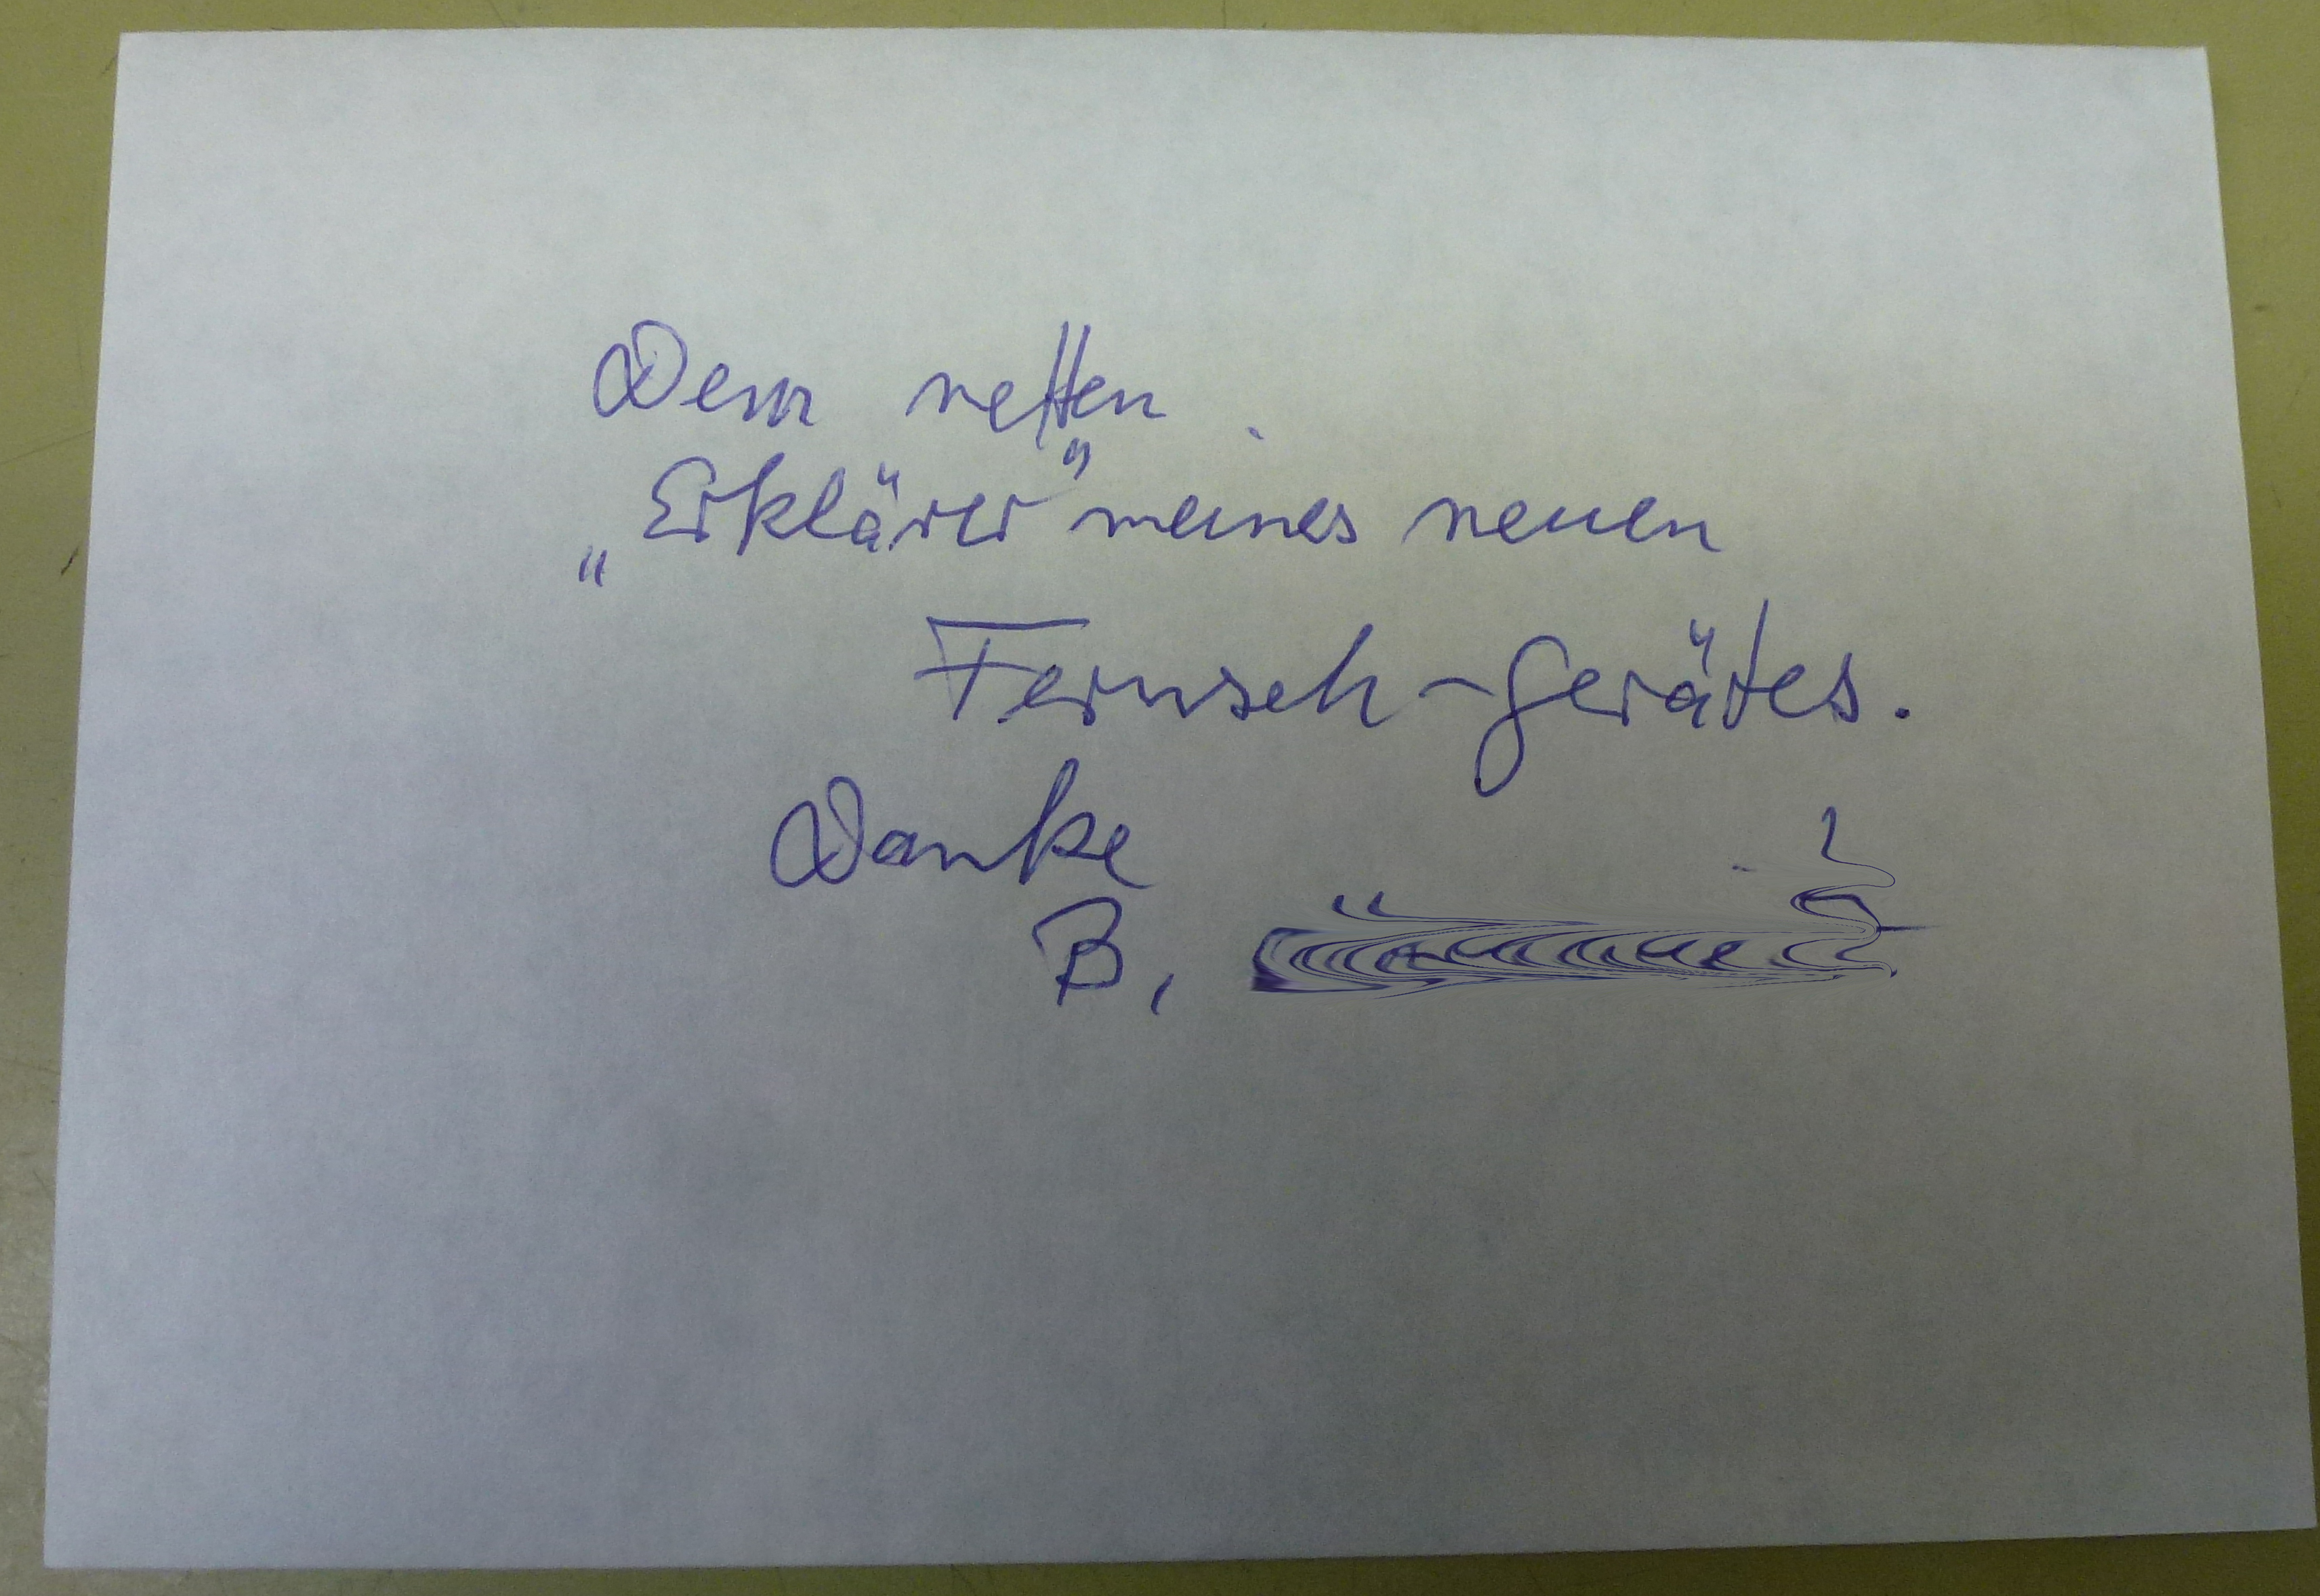 Dem netten
„Erklärer" meines neuen
Fernseh-gerätes.
Danke
B,